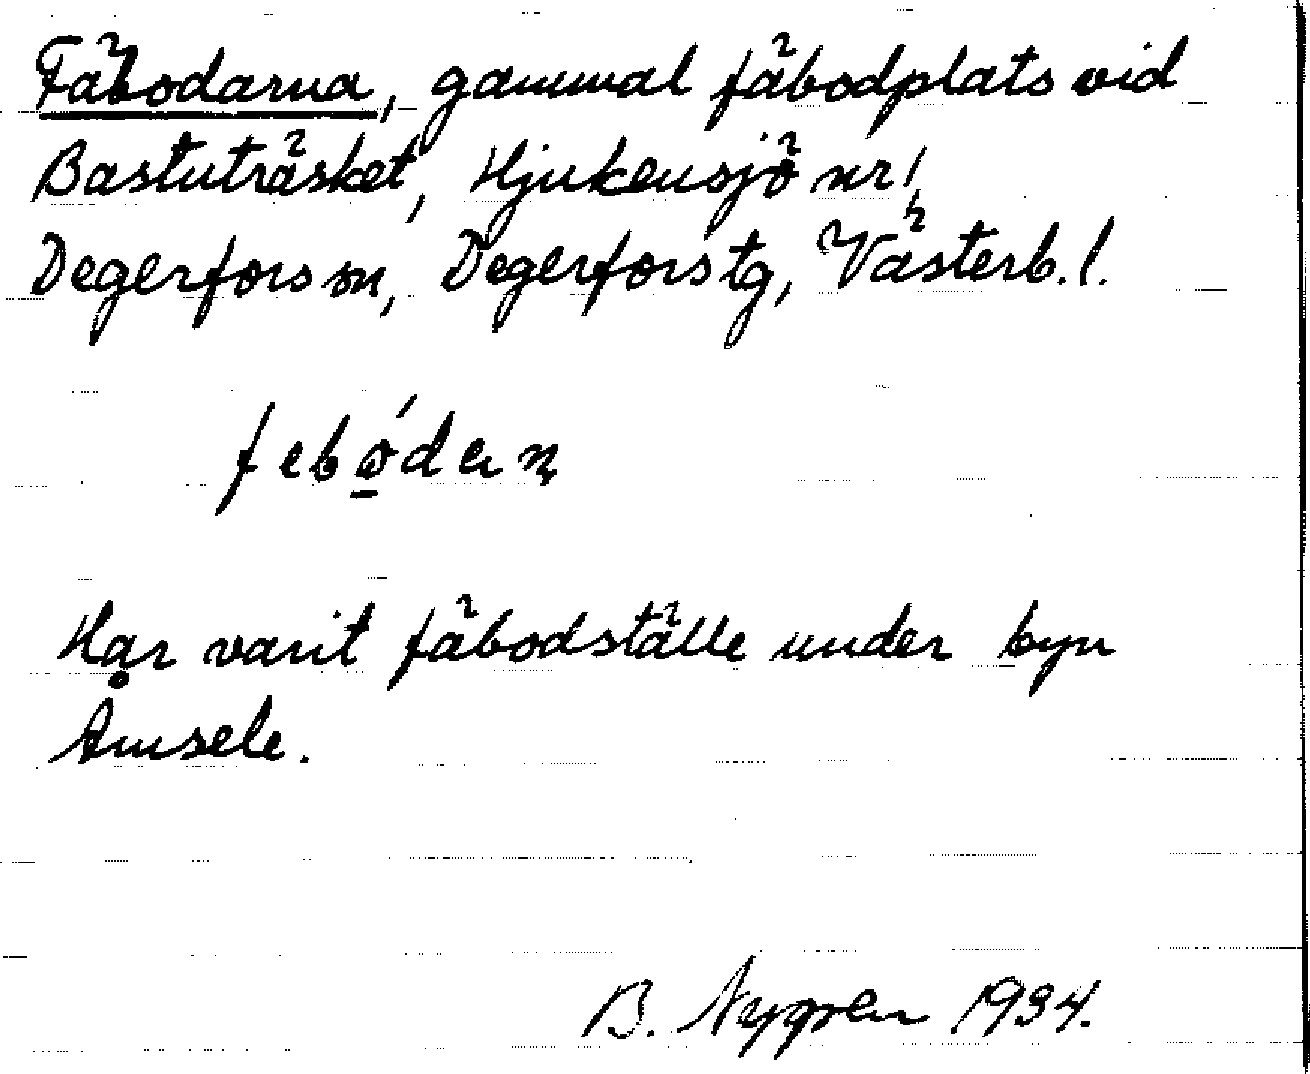 Fäbodarna, gammal fäbodplats vid
Bastuträsket, Hjukensjö nr 1,
Degerfors sn, Degerfors tg, Västerb. l.
febo̲´dan̥
Har varit fäbodställe under byn
Åmsele.
B. Nygren 1934.